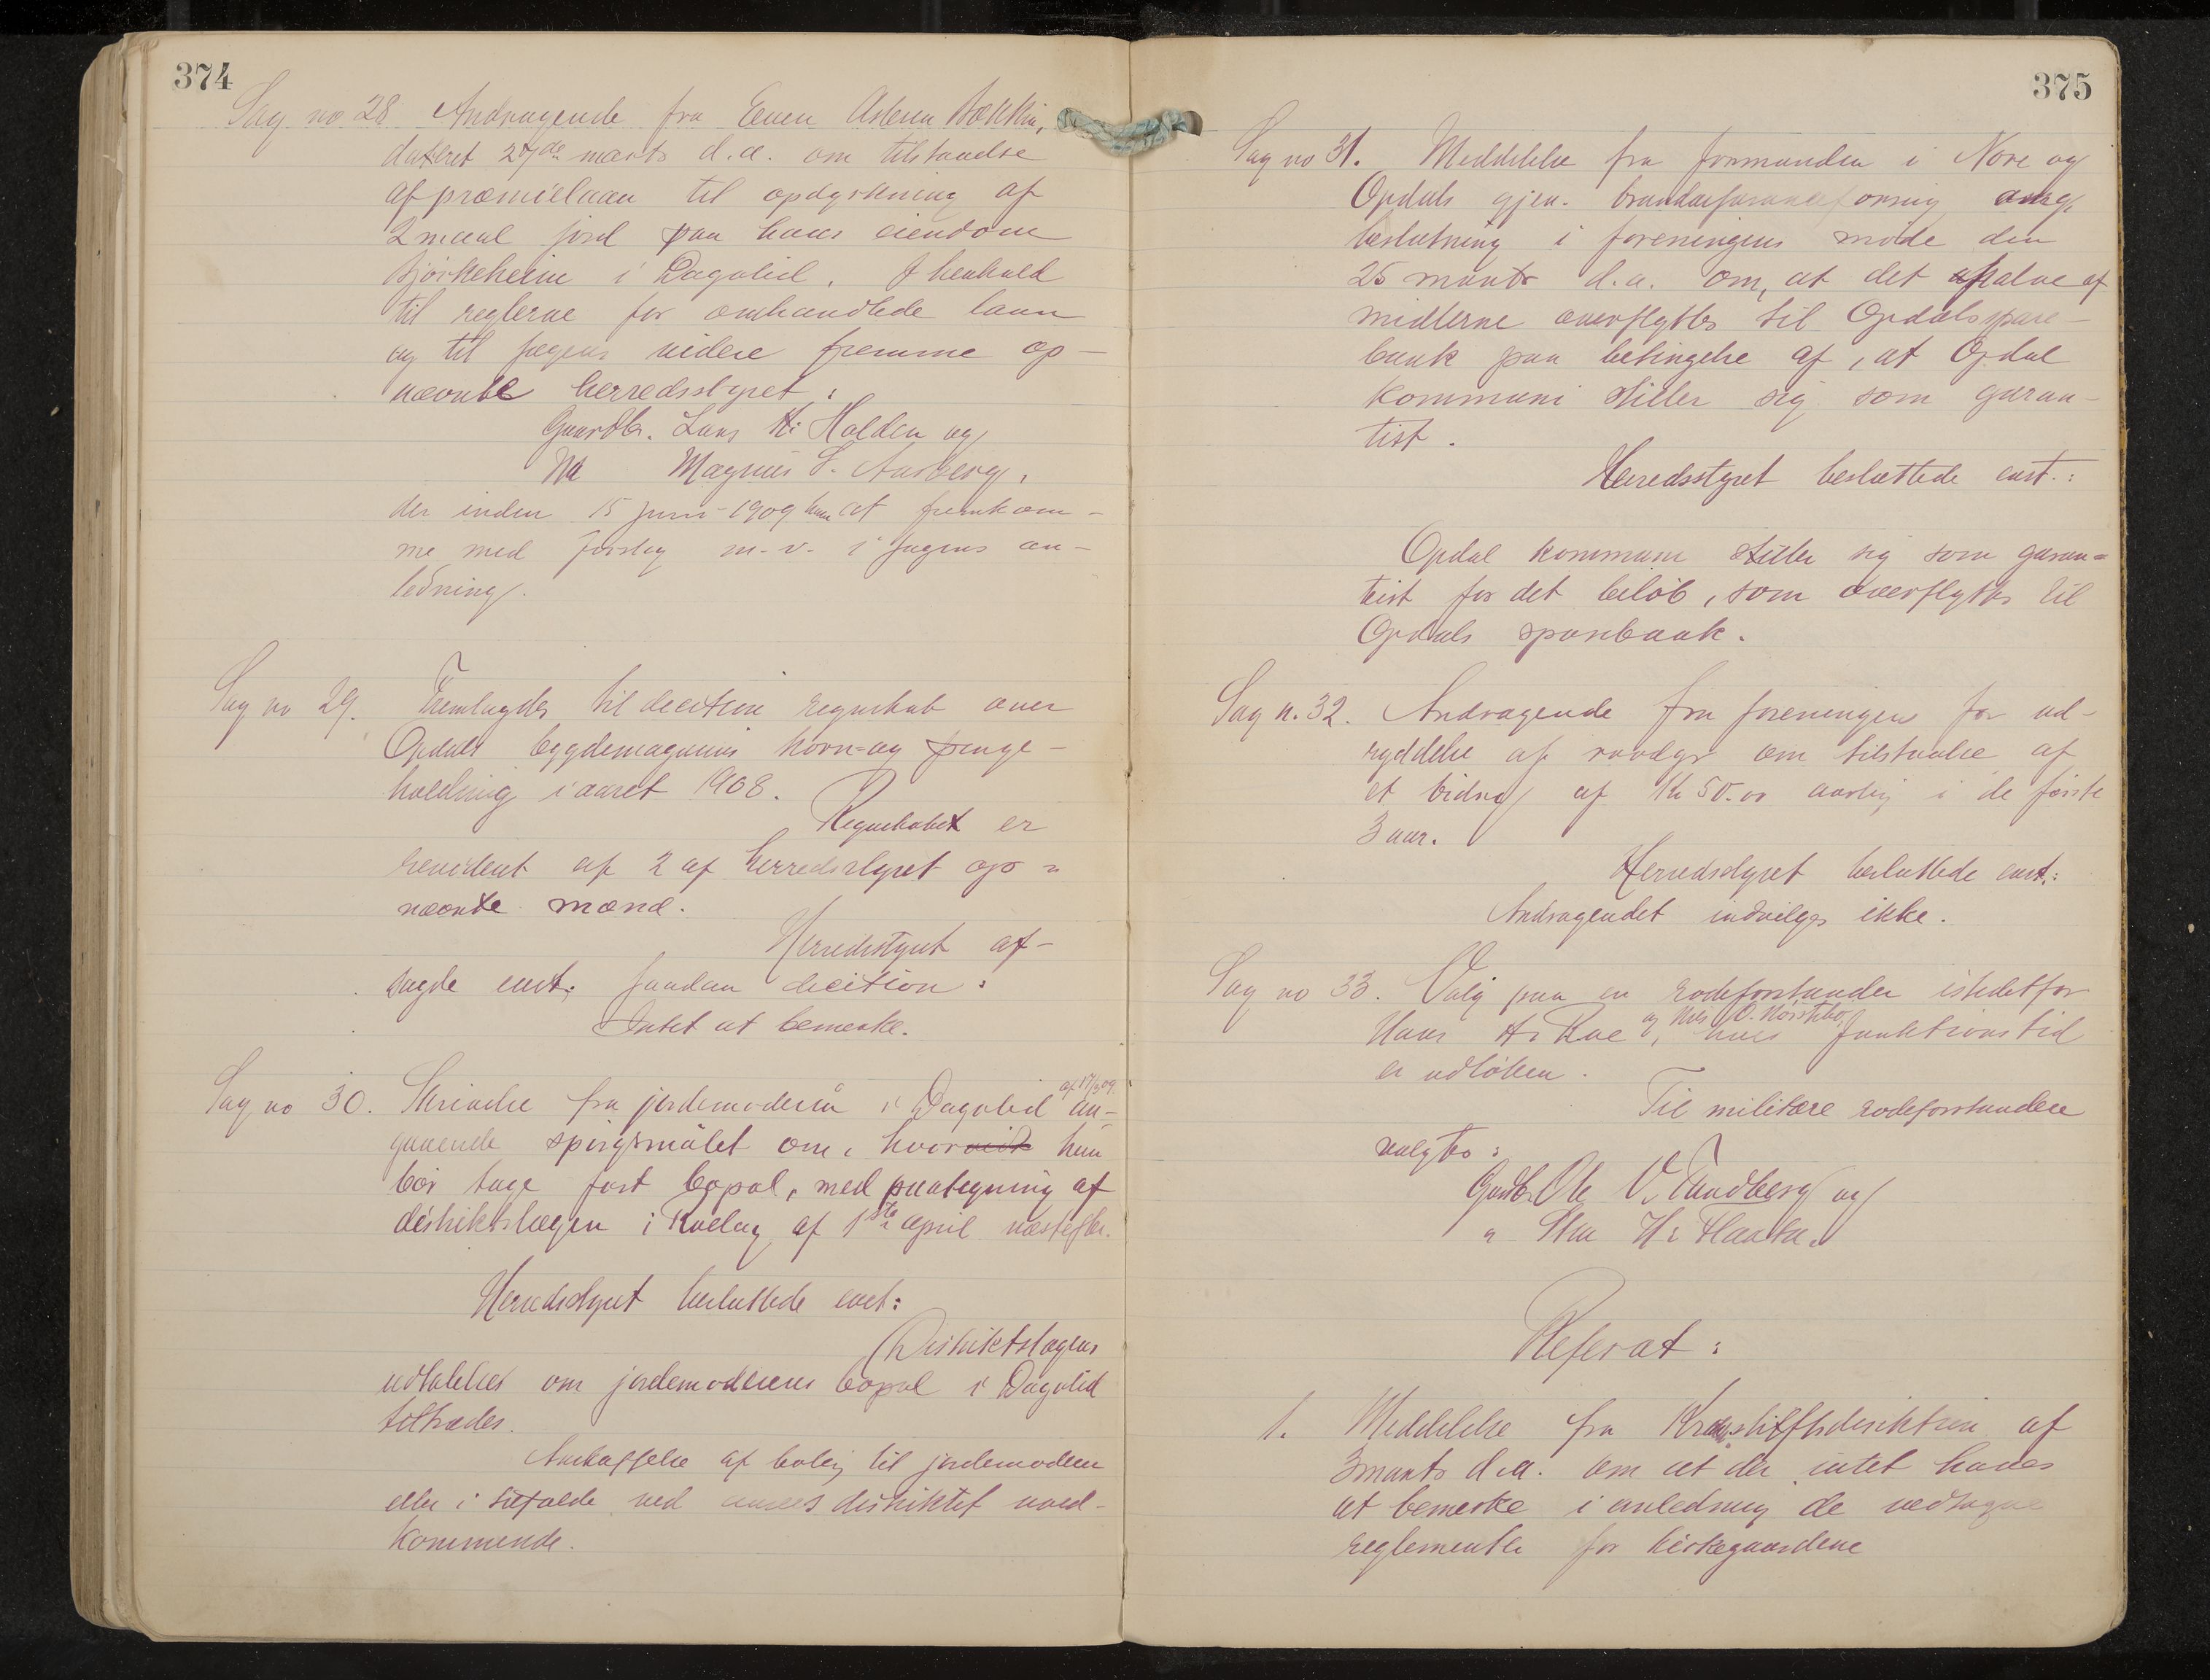 374
Sag no 28 Andragende fra Even Aslesen Bækkin,
dateret 27de marts d.a. om tilstaaelse
af præmielaan til opdyrkning af
2 maal jord paa hans eiendom
Bjørkeheim i Dagalid. I henhold
til reglerne for omhandlede laan
og til sagens videre fremme op-
nævnte herredsstyret:
Gaardbr. Lars H. Holden og
Magnus S. Aasberg,
der inden 15 juni 1909 har at fremkom-
me med forslag m.v. i sagens an-
ledning.
Sag no 29. Fremlagdes til decition regnskab over
Opdals bygdemagasins korn- og penge-
holdning i aaret 1908.
Regnskabet er
revideret af 2 af herredsstyret op=
nævnte mænd.
Herredsstyret af-
sagde enst. saadan decition:
Intet at bemerke.
Sag no 30. Skrivelse fra jordemoderen i Dagalid af 17/3 09 an-
gaaende spørgsmålet om, hvor hun
bør tage fast bopæl, med paategning af
distriktslægen i Rollag af 1ste april næstefter.
Herredsstyret besluttede enst:
Distriktslægens
udtalelse om jordemoderens bopæl i Dagalid
tiltrædes.
Anskaffelse af bolig til jordemoderen
eller i tilfælde ved distriktet
kommende.
375
Sag no 31. Meddelelse fra formanden i Nore og
Opdals gjen. brandassuranceforening ang.
beslutning i foreningens møde den
25 marts d.a. om, at det halve af
midlerne overflyttes til Opdals spare-
bank paa betingelse af, at Opdal
kommune stiller sig som garan-
tist.
Herredsstyret besluttede enst.:
Opdal kommune stiller sig som garan=
tist for det beløb, som overflyttes til
Opdals sparebank.
Sag n. 32. Andragende fra foreningen for ud-
ryddelse af rovdyr om tilstaaelse af
et bidrag af Kr 50.00 aarlig i de første
3 aar.
Herredsstyret besluttede enst.:
Andragendet indvilges ikke.
Sag no 33. Valg paa en rodeforstander istedetfor
Hans H. Rue og Nils O. Nørstebø, hvis funktionstid
er udløben.
Til militære rodeforstandere
valgtes:
Gaardbr. Ole V. Tandberg og
" H. Flaata.
Referat:
1. Meddelelse fra Kr.ania stiftsdirektion af
3 marts d.a. om at der intet haves
at bemerke i anledning de vedtagne
reglementer for kirkegaardene